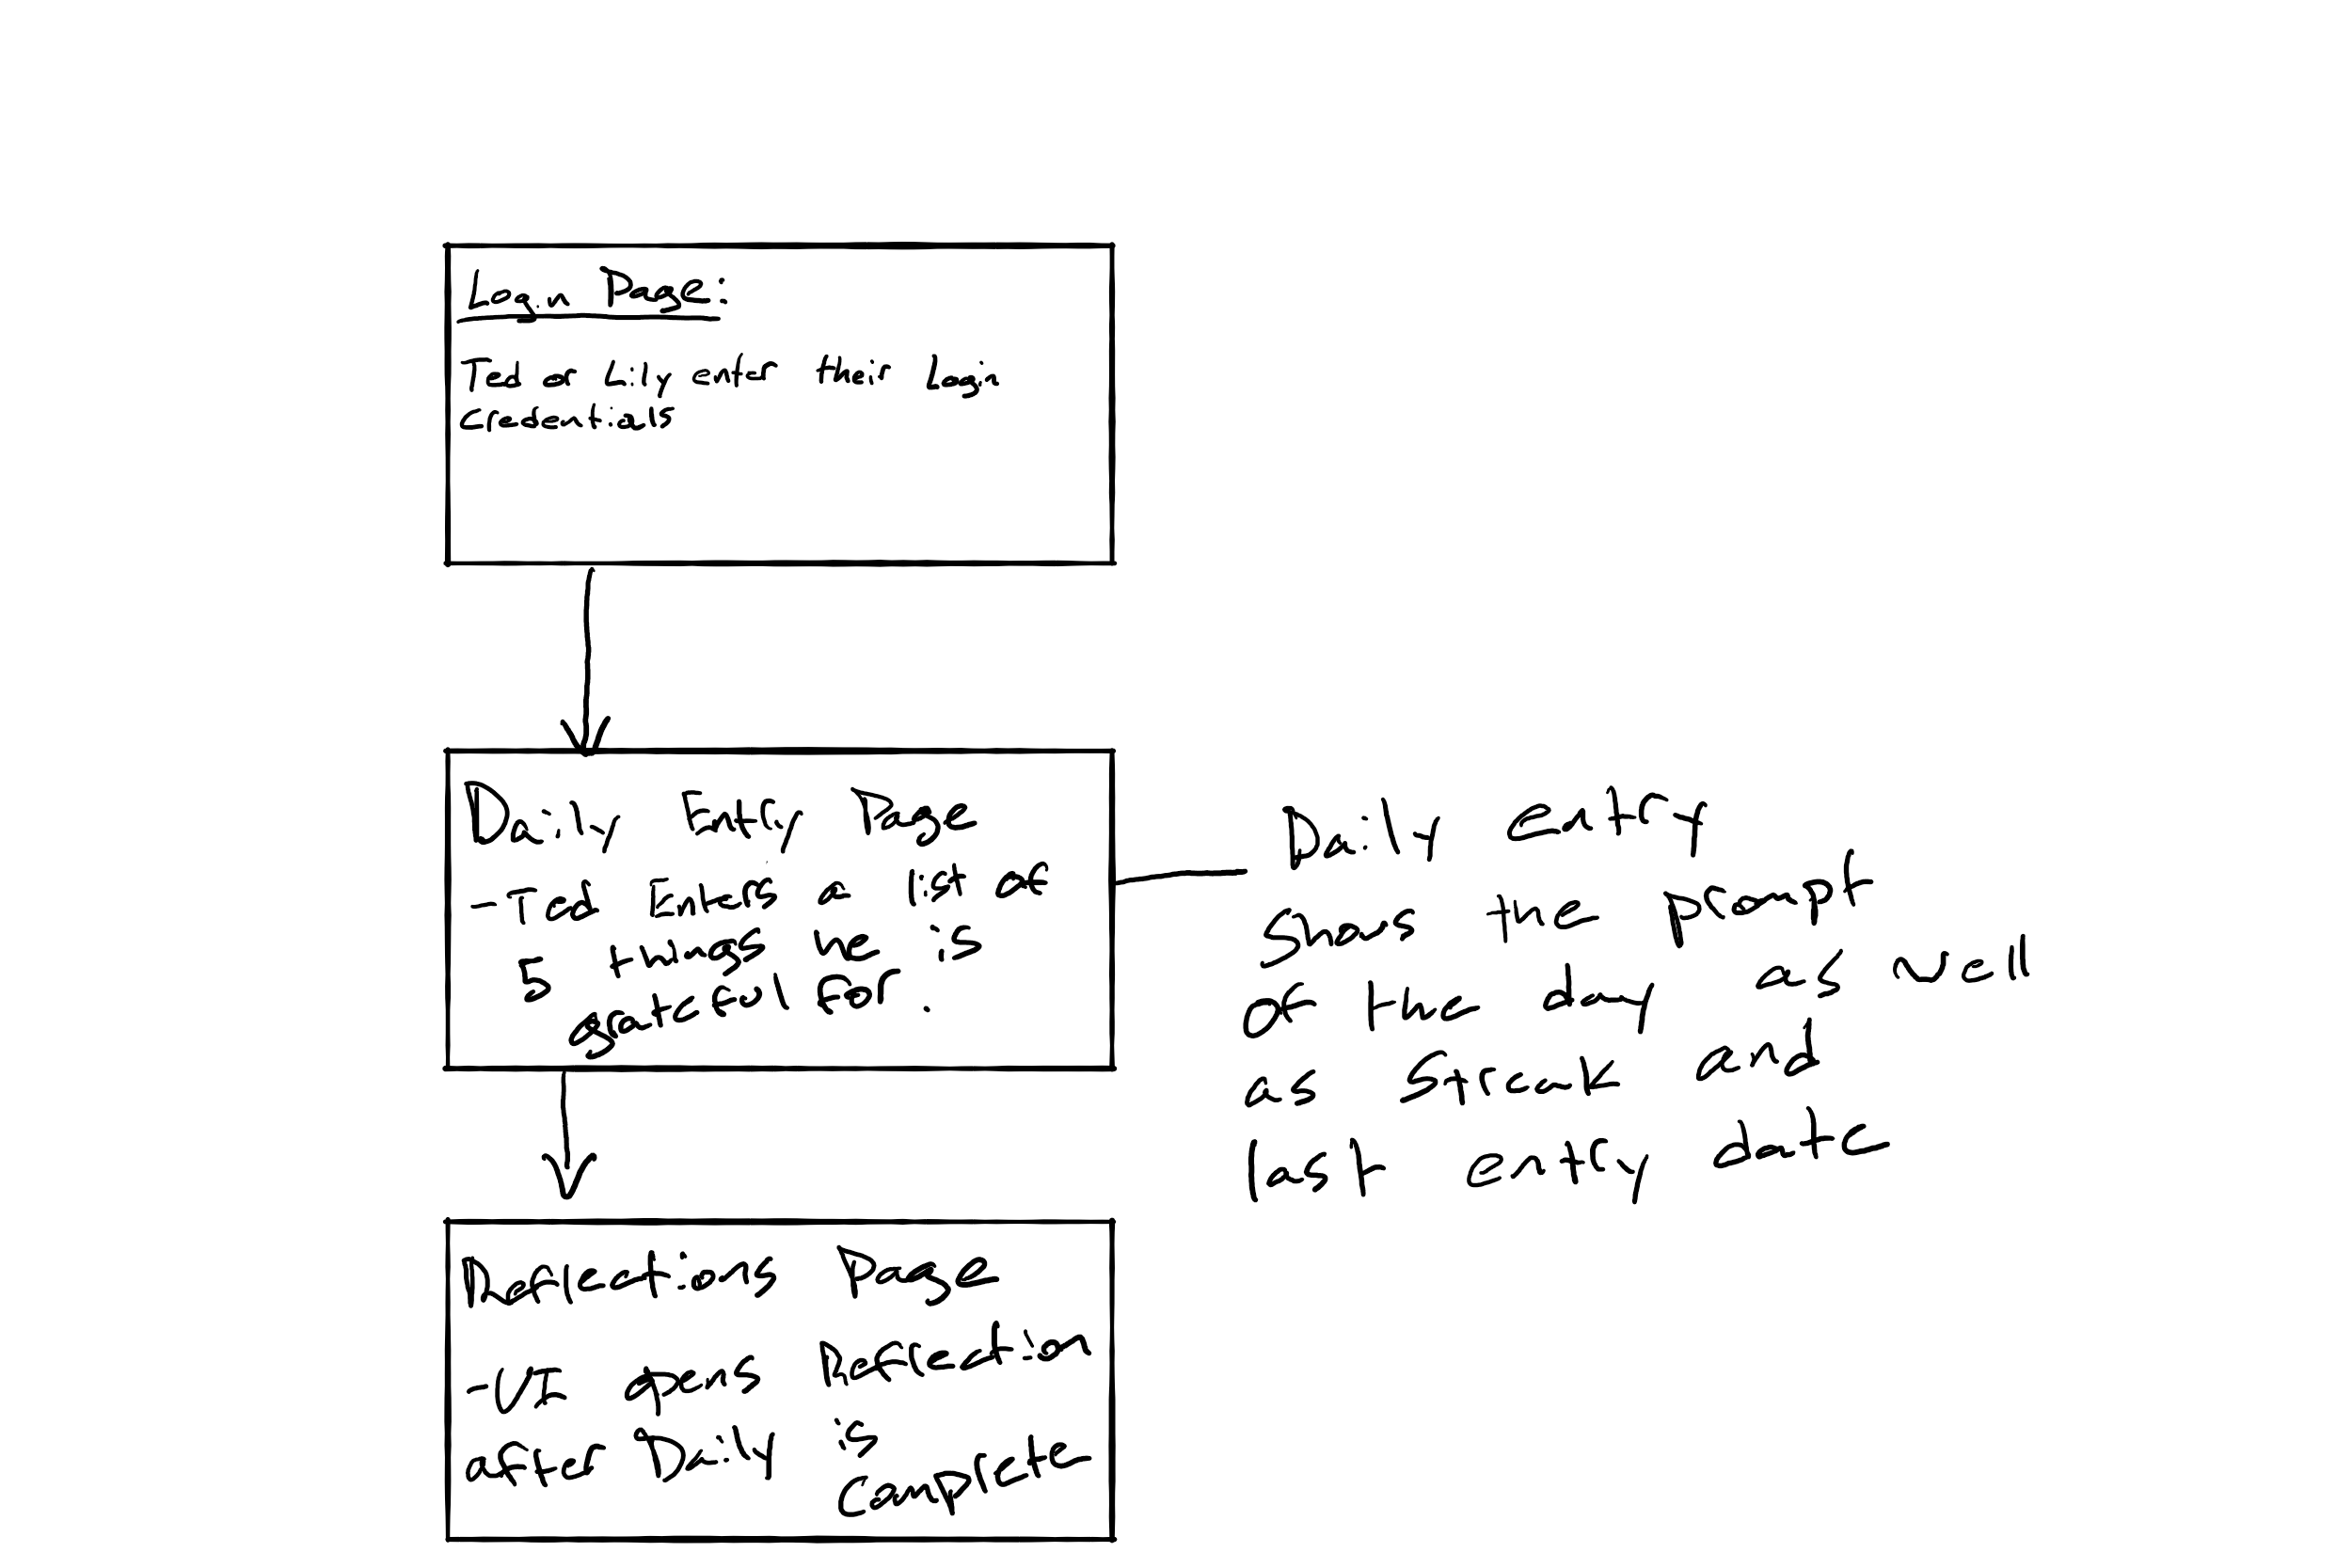 Login Page:
Ted or Lily enter their Login
Credentials
Daily Entry Page
-Ted Enters a list of
5 things he is
grateful for.
Daily entry
Shows the prompt
of the day as well
as Streak and
last entry date
Reflections Page
-UI opens Reflection
after Daily is
Complete